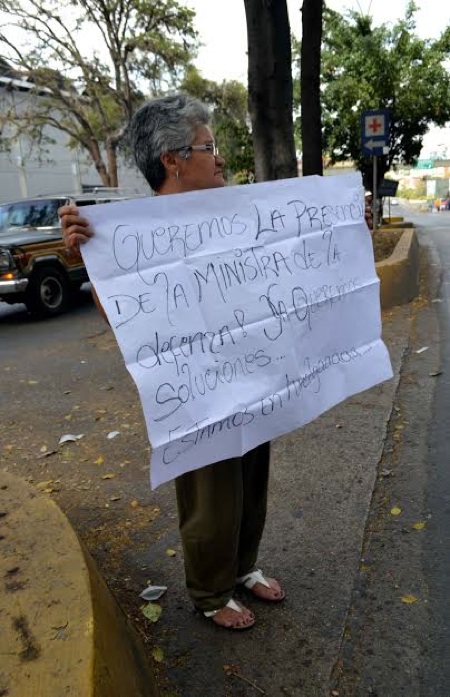 Queremos LA Presenci
DE lA MinistrA de lA
defenza! YA Queremos
soluciones...
Estamos en huelga